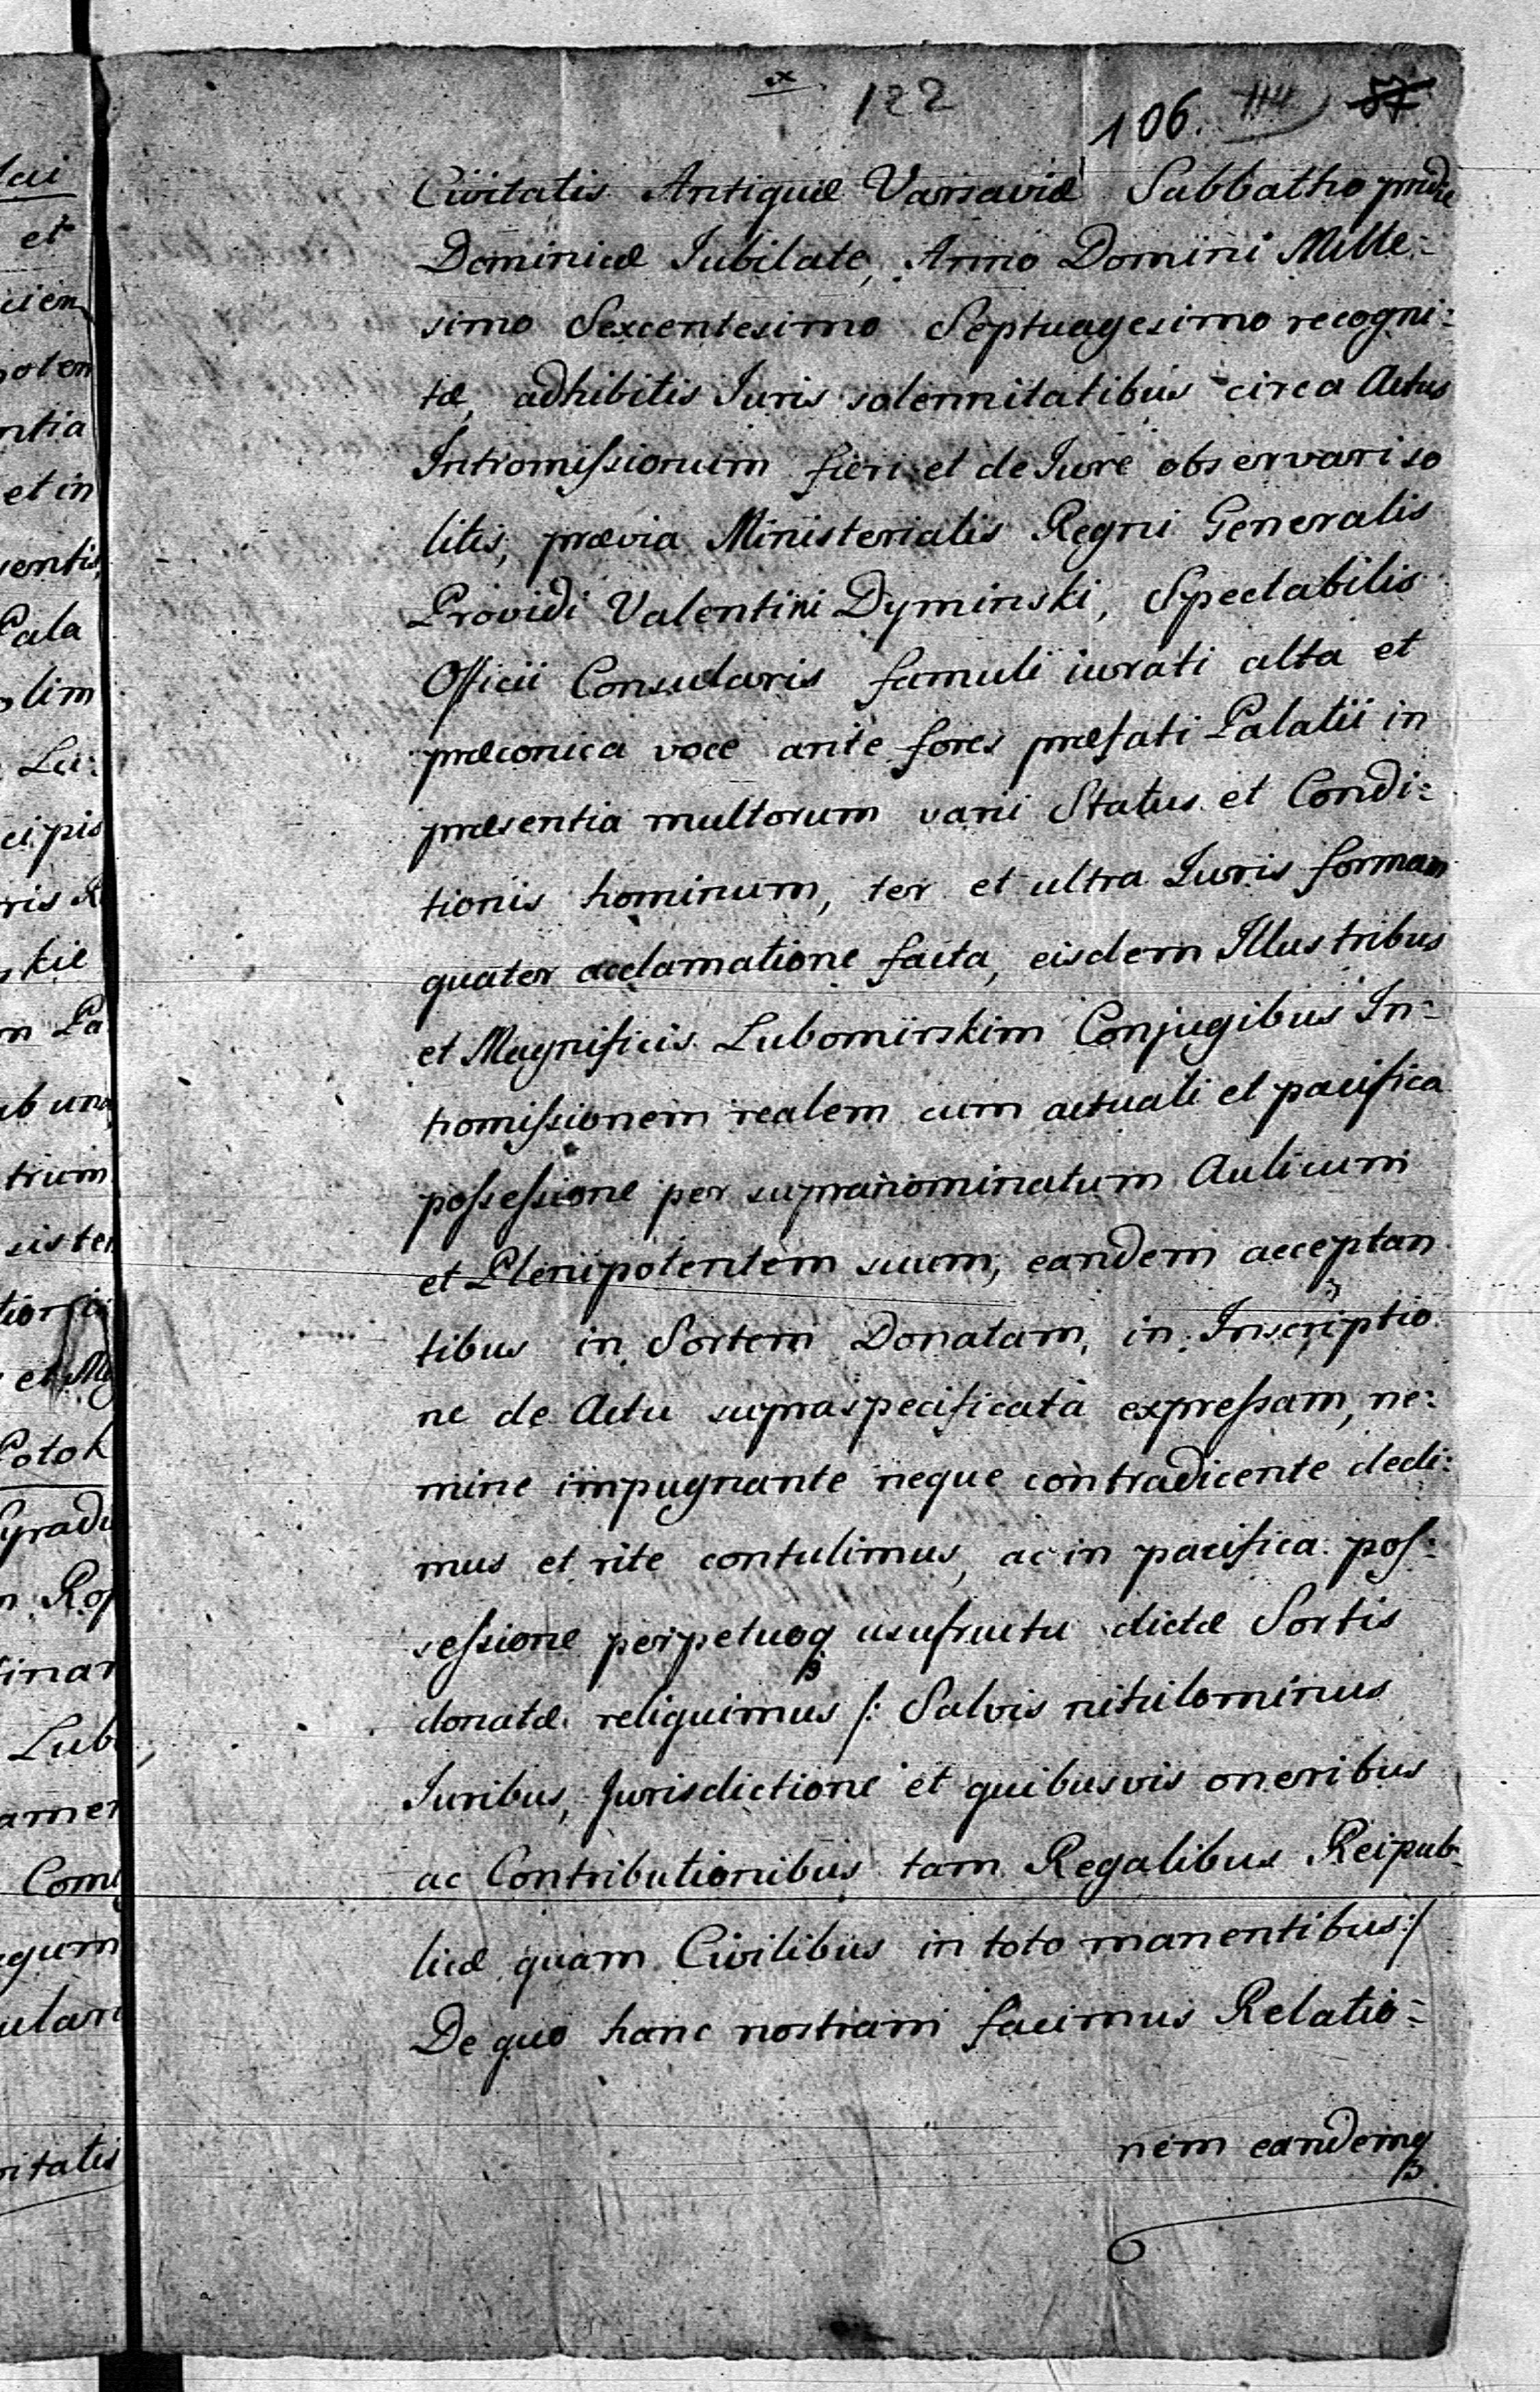 122
106.
Civitatis Antiquæ Varsaviæ Sabbatho pridie
Dominicæ Iubilate, Anno Domini Mille:
simo Sexcentesimo Septuagesimo recogni:
tæ, adhibitis Iuris solennitatibus circa Actus
Intromissionum fieri et de Iure observari so
litis, prævia Ministerialis Regni Generalis
Providi Valentini Dyminski, Spectabilis
Officii Consularis famuli iurati alta et
præconica voce ante fores præfati Palatii in
præsentia multorum varii Status et Condi:
tionis hominum, ter et ultra Iuris formam
quater acclamatione facta, eisdem Illustribus
et Magnificis Lubomirskim Conjugibus In:
tromissionem realem cum actuali et pacifica
possessione per supranominatum Aulicum
et Plenipotentem suum, eandem acceptan
tibus in Sortem Donatam, in Inscriptio
ne de Actu supraspecificata expressam, ne:
mine impugnante neque contradicente dedi:
mus et rite contulimus, ac in pacifica pos:
sessione perpetuoq usufructu dictæ Sortis
donatæ reliquimus /: Salvis nihilominus
Iuribus, Jurisdictione et quibusvis oneribus
ac Contributionibus tam Regalibus Reipub:
licæ quam Civilibus in toto manentibus :/
De quo hanc nostram facimus Relatio:
nem eandemq